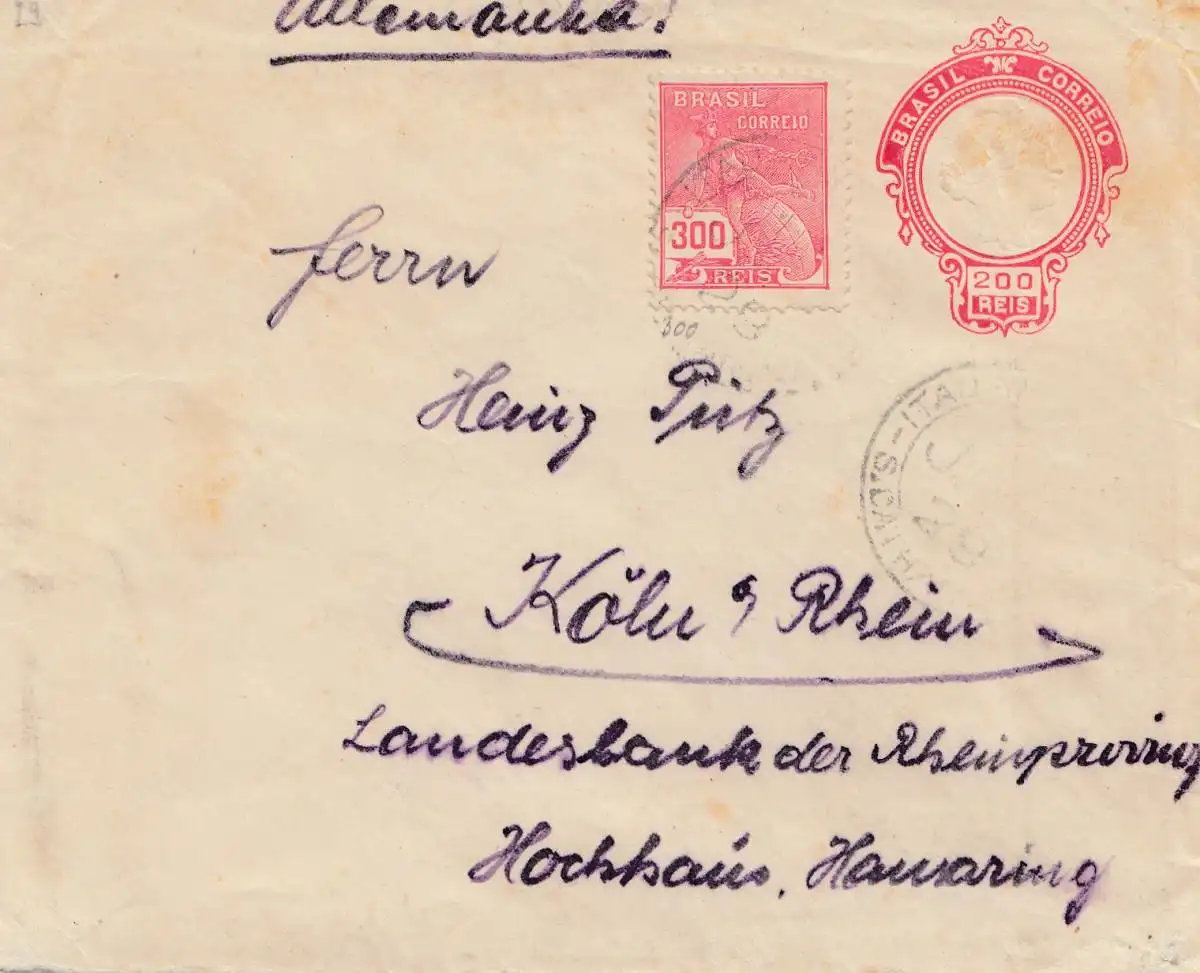 29
Allemanha!
BRASIL
CORREIO
300
REIS
300
BRASIL CORREIO
200
REIS
Herrn
Heinz Pütz
Köln a/ Rhein
Landesbank der Rheinprovinz
Hochhaus, Hansaring